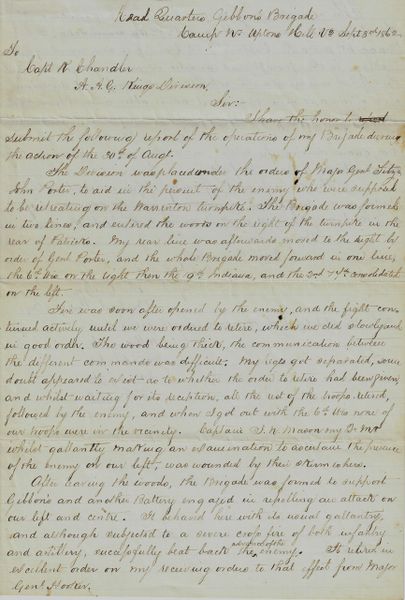 Head Quarters Gibbon's Brigade
Camp Nr Uptons Hill Va Sept 3rd 1862
To
Capt R Chandler
A.A.G. Kings Division,
Sir:
I have the honor to
submit the following report of the operations of my Brigade during
the action of the 30th of Augt.
The Division was placed under the orders of Major Genl Fitz
John Porter, to aid in the pursuit of the enemy who were supposed
to be retreating on the Warrenton turnpike. The Brigade was formed
in two lines, and entered the woods on the right of the turnpike in the
rear of Patricks. My rear line was afterwards moved to the right by
order of Genl Porter, and the whole Brigade moved forward in one line,
the 6th Wis on the right then the 19th Indiana, and the 2nd & 7th consolidated
on the left.
Fire was soon after opened by the enemy, and the fight con-
tinued actively until we were ordered to retire, which we did slowly and
in good order. The wood being thick, the communication between
the different commands was difficult. My regts got separated, some
doubt appeared to exist as to whether the order to retire had been given
and whilst waiting for its reception, all the rest of the troops retired,
followed by the enemy, and when I got out with the 6th Wis none of
our troops were in the vicinity. Captain J. R. Mason my
whilst gallantly making an examination to ascertain the presence
of the enemy on our left, was wounded by their skirmishers.
After leaving the woods, the Brigade was formed to support
Gibbons and another Battery engaged in repelling an attack on
our left and centre. It behaved here with its usual gallantry,
and although subjected to a severe cross fire of both infantry
and artillery, successfully beat back the advance of the enemy. It retired in
excellent order on my receiving orders to that effect from Major
Genl Hooker.